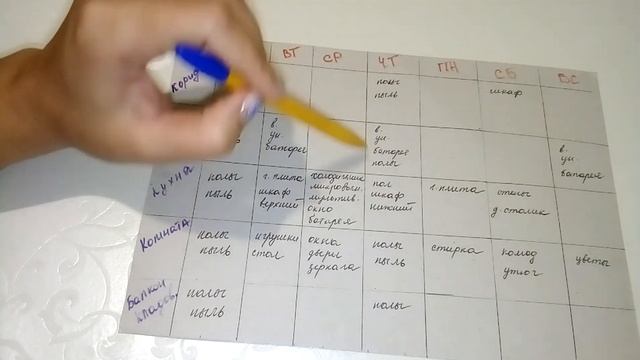 ВТ СР ЧТ ПН СБ ВС
корид
полы
пыль
шкаф
в.
ун.
батареи
в.
ун.
батарея
полы
в.
ун.
батарея
Кухня
полы
пыль
г. плита
шкаф
верхний
холодильник
микроволн.
мультив.
окно
батарея
пол
шкаф
нижний
г. плита
стулы
д. столик
Комната
полы
пыль
игрушки
стол
окна
двери
зеркала
полы
пыль
стирка
комод
утюг
цветы
Балкон
кладов.
полы
пыль
полы